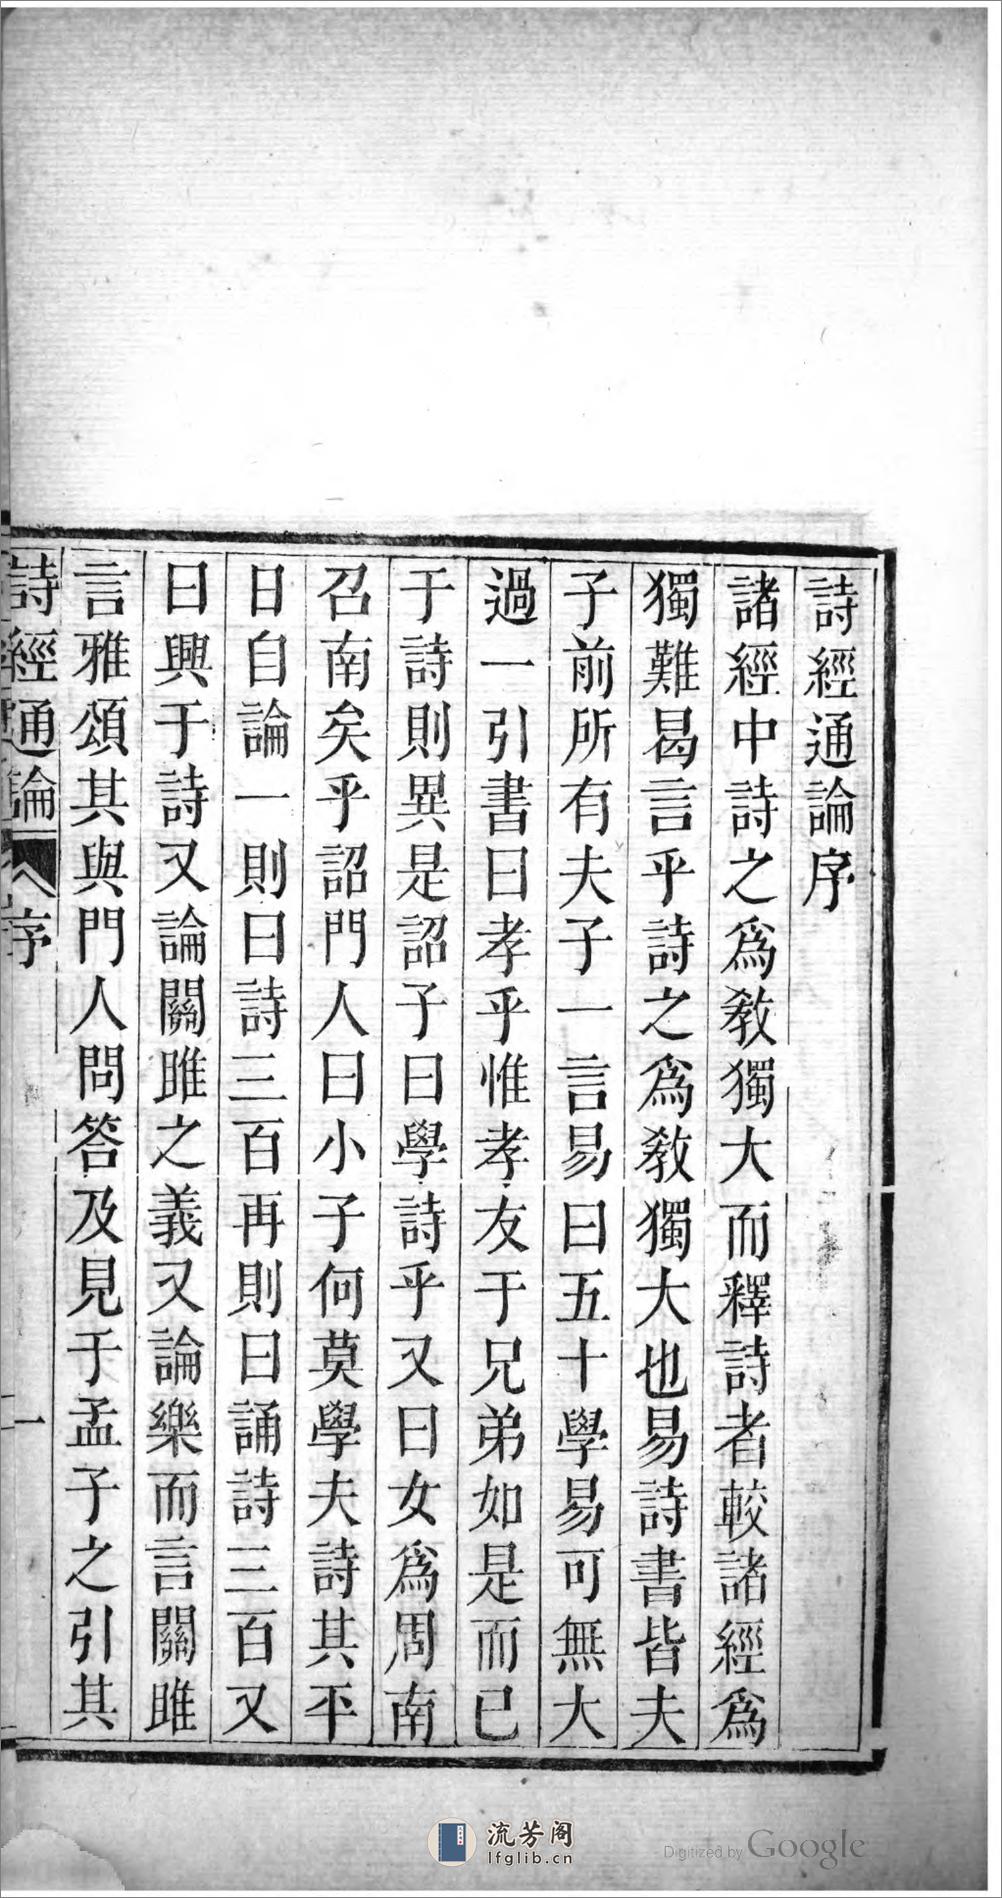 詩經通論序
諸經中詩之爲敎獨大而釋詩者較諸經爲
獨難曷言乎詩之爲敎獨大也易詩書皆夫
子前所有夫子一言易曰五十學易可無大
過一引書曰孝乎惟孝友于兄弟如是而已
于詩則異是詔子曰學詩乎又曰女爲周南
召南矣乎詔門人曰小子何莫學夫詩其平
日自論一則曰詩三百再則曰誦詩三百又
曰興于詩又論關雎之義又論樂而言關雎
言雅頌其與門人問答及見于孟子之引其
詩經通論
序
一
流芳阁
lfglib.cn
Digitized by Google